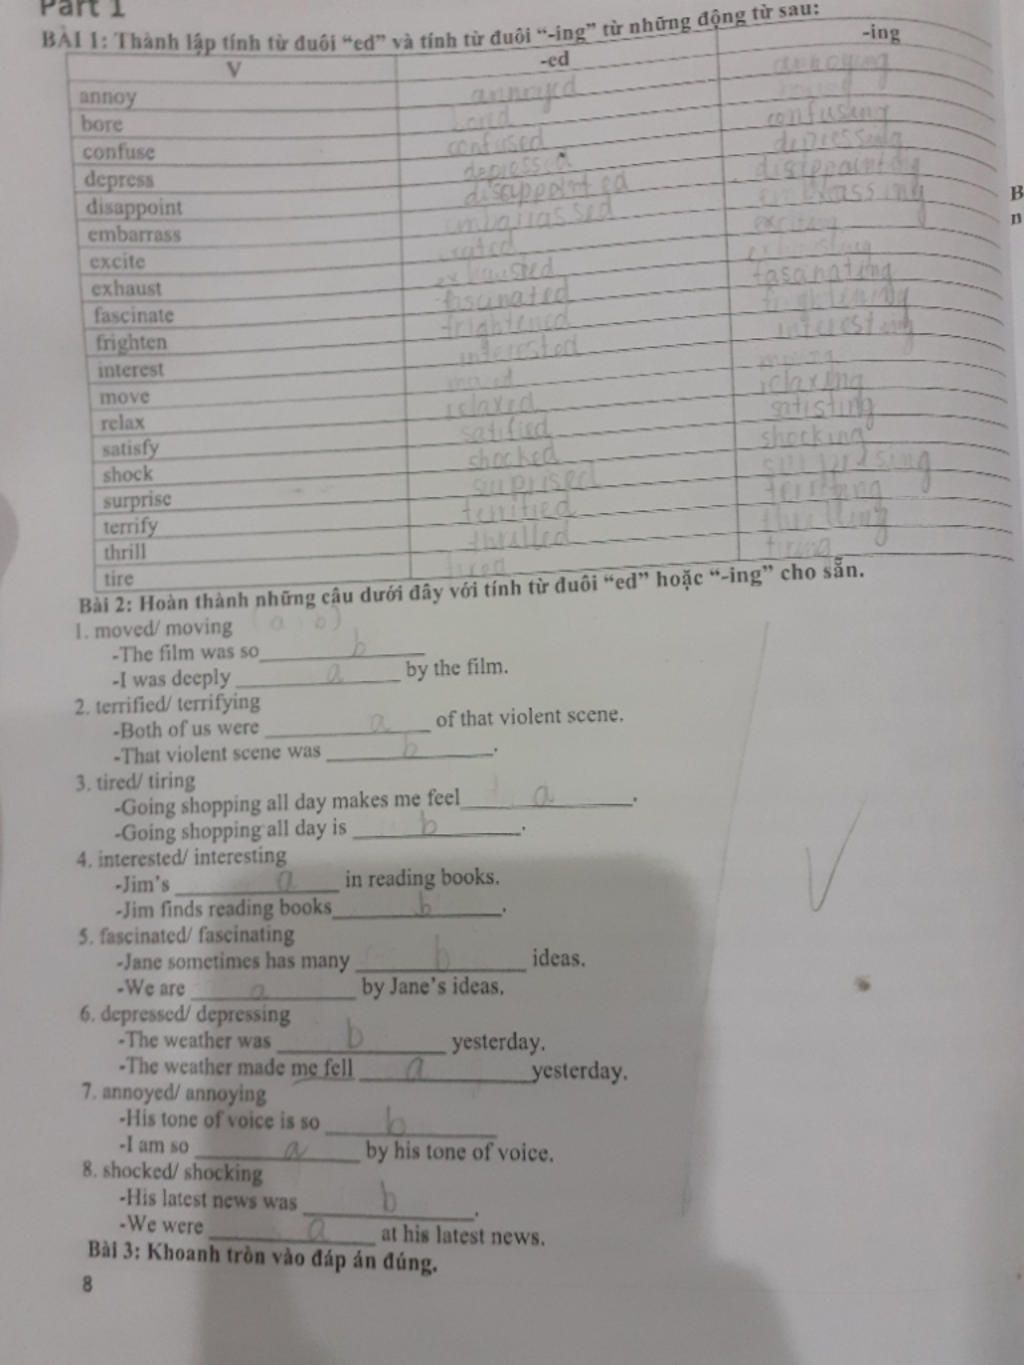 Part 1
BÀI 1: Thành lập tính từ đuôi “ed” và tính từ đuôi “-ing” từ những động từ sau:
V -ed -ing
annoy annoyed annoying
bore bored
confuse confused confusing
depress depressed depressing
disappoint disappointed disappointing
embarrass embarrassed
excite exciting
exhaust exhausted exhausting
fascinate fascinated fasanating
frighten frightened frightening
interest interested interesting
move moved moving
relax relaxed relaxing
satisfy satified satisting
shock shocked shocking
surprise surprised surprising
terrify terrified
thrill thrilled thrilling
tire tired tiring
Bài 2: Hoàn thành những câu dưới đây với tính từ đuôi “ed” hoặc “-ing” cho sẵn.
1. moved/ moving (a, b)
-The film was so b
-I was deeply a by the film.
2. terrified/ terrifying
-Both of us were a of that violent scene.
-That violent scene was b.
3. tired/ tiring
-Going shopping all day makes me feel a.
-Going shopping all day is b.
4. interested/ interesting
-Jim’s a in reading books.
-Jim finds reading books b.
5. fascinated/ fascinating
-Jane sometimes has many b ideas.
-We are a by Jane’s ideas.
6. depressed/ depressing
-The weather was b yesterday.
-The weather made me fell a yesterday.
7. annoyed/ annoying
-His tone of voice is so b
-I am so a by his tone of voice.
8. shocked/ shocking
-His latest news was b.
-We were a at his latest news.
Bài 3: Khoanh tròn vào đáp án đúng.
8
B
n